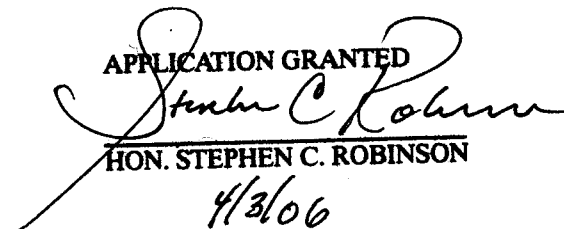 APPLICATION GRANTED
Stephen C Robinson
HON. STEPHEN C. ROBINSON
4/3/06